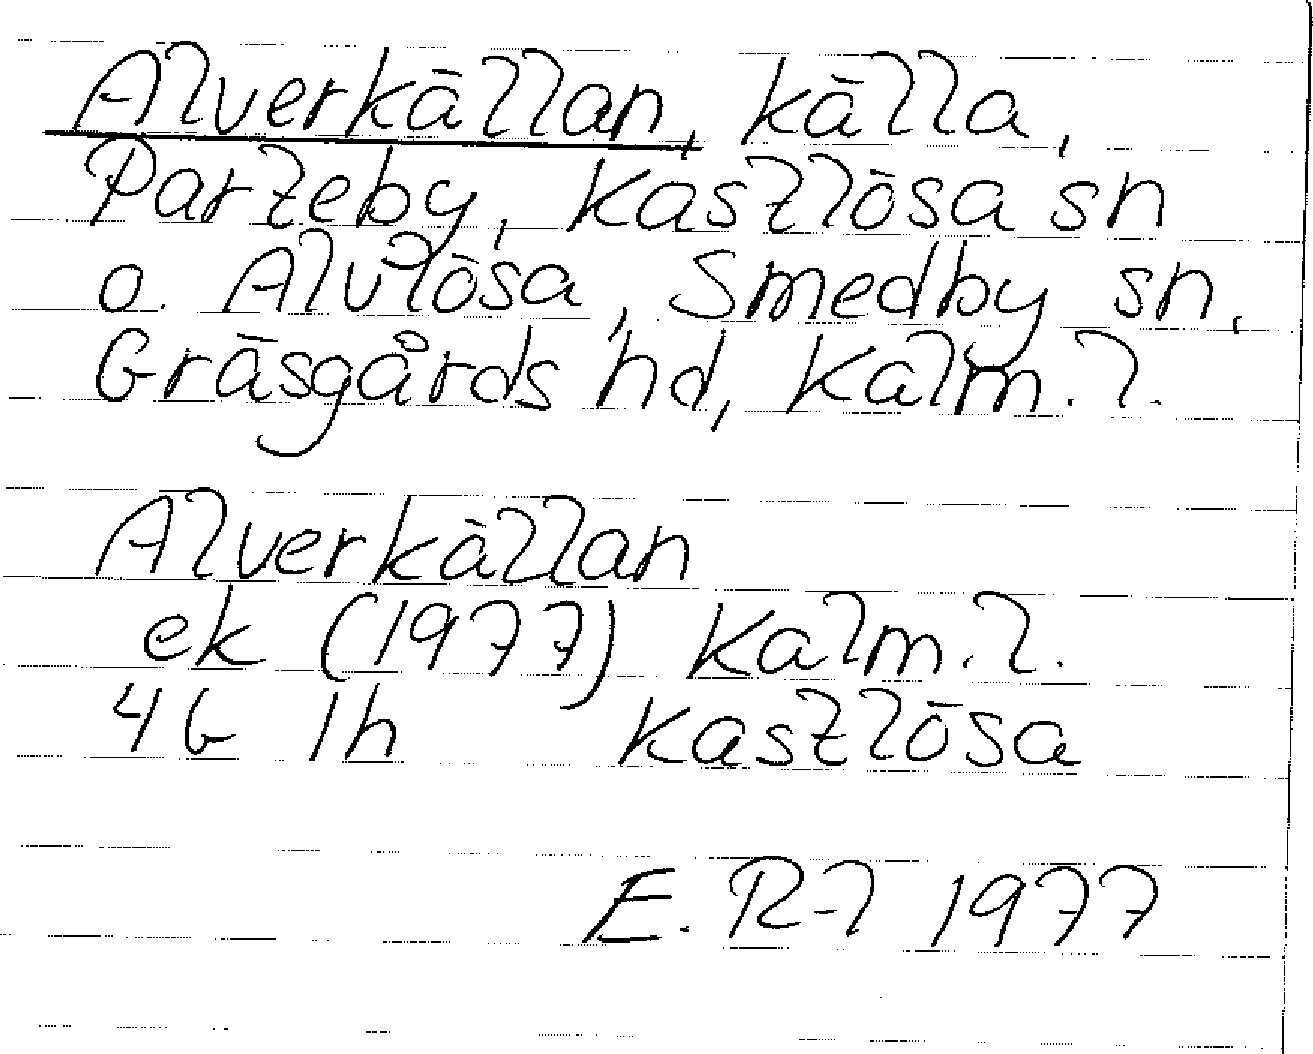 Alverkällan, källa,
Parteby, Kastlösa sn
o. Alvlösa, Smedby sn,
Gräsgårds hd, Kalm. l.
Alverkällan
ek (1977) Kalm. l.
4G 1h Kastlösa
E. R-l 1977